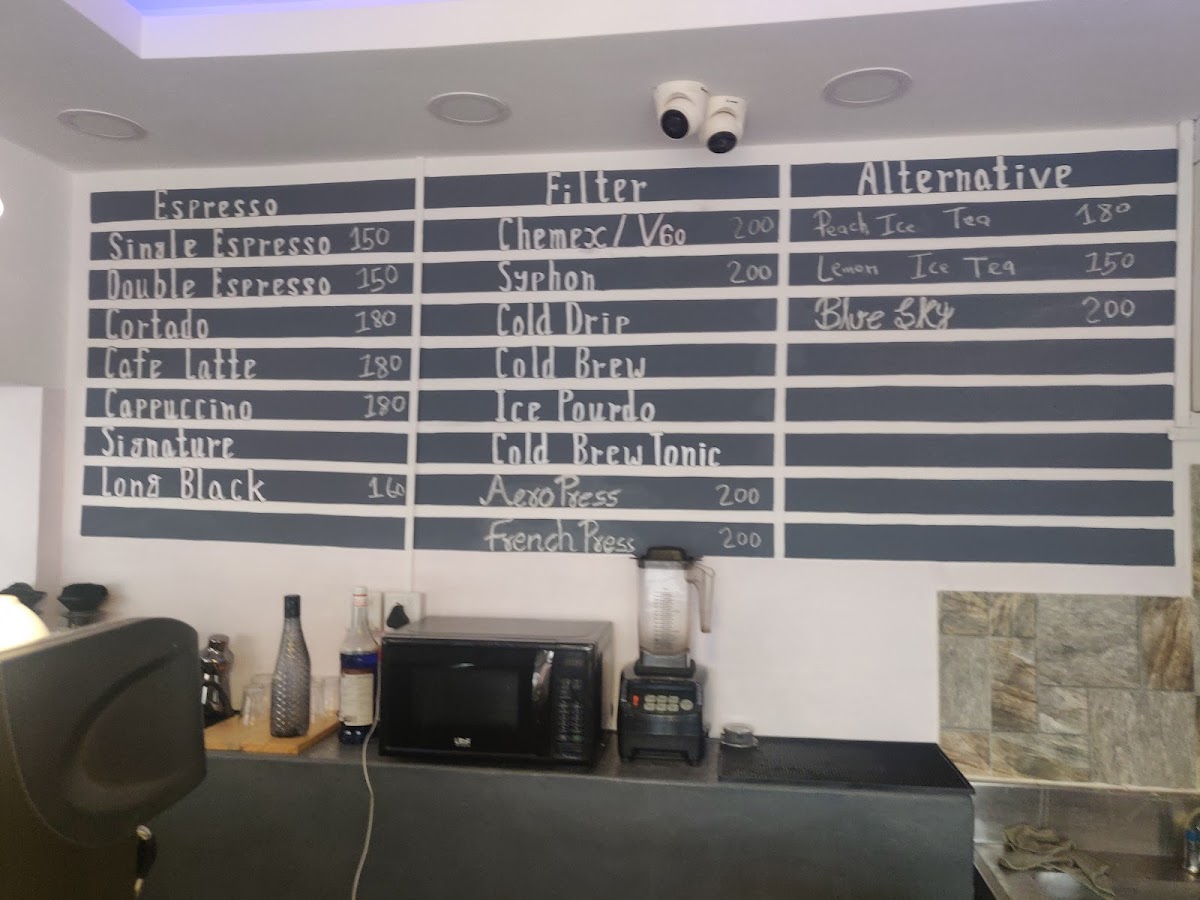 Espresso
Single Espresso 150
Double Espresso 150
Cortado 180
Cafe Latte 180
Cappuccino 180
Signature
Long Black 160
Filter
Chemex/V60 200
Syphon 200
Cold Drip
Cold Brew
Ice Pourdo
Cold Brew Tonic
AeroPress 200
French Press 200
Alternative
Peach Ice Tea 180
Lemon Ice Tea 150
Blue Sky 200